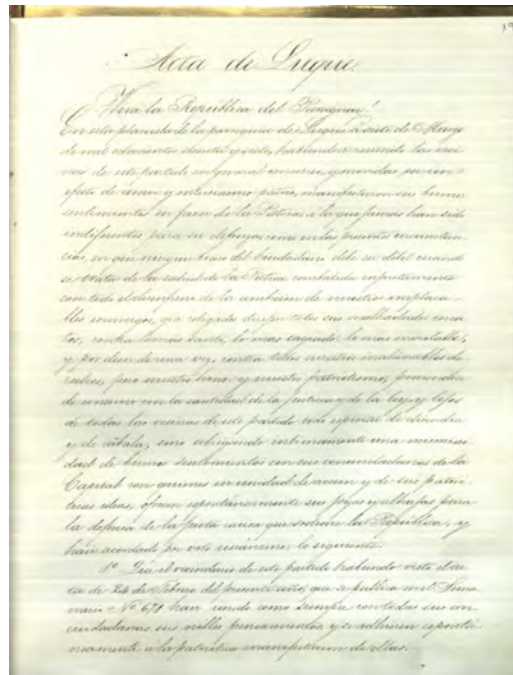 Acta de Luque.
¡Viva la República del Paraguay!
En esta plazuela de la parroquia de Luque á siete de Marzo
de mil ochocientos sesenta y siete, habiendose reunido las veci
nas de este partido en general y movidas por un
efecto de amor y entusiasmo patrio, manifestaron sus buenos
sentimientos en favor de la Patria, á la que jamas han sido
indiferentes para su defensa, como en las presentes circunstan
cias, en que ningun brazo del Ciudadano debe ser debil cuando
se trata de la salud de la Patria combatida
con todo el de la ambicion de nuestros implaca
bles enemigos, que coligados dirijen todos sus malhadados cona
tos, contra lo mas santo, lo mas sagrado, lo mas inviolable,
y por decir de una vez, contra todos nuestros inalienables de
rechos, pero nuestro honor y nuestro patriotismo,
de consuno con la santidad de la justicia y de la ley, y lejos
de todas las vecinas de este partido toda especie de discordia
y de cábala, sino abrigando intimamente una
dad de buenos sentimientos con sus conciudadanas de la
Capital con quienes en unidad de accion y de sus patrió
ticas ideas, ofrecen espontáneamente sus joyas y alhajas para
la defensa de la justa causa que sostiene la República, y
han acordado por voto unánime lo siguiente.
1º. Que el vecindario de este partido habiendo visto el ac
ta de 24 de Febrero del presente año, que se publica en el Sema
nario Nº 671 han unido como siempre con todas sus con
ciudadanas sus nobles pensamientos, y se adhieren espontá
neamente á la patriótica manifestacion de ellas.